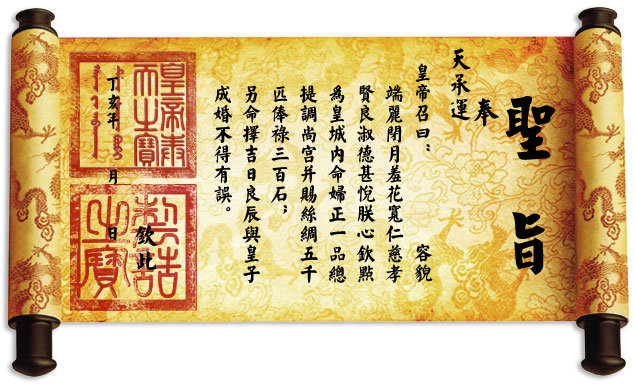 聖旨
奉
天承運
皇帝召曰：　容貌
端麗閉月羞花寬仁慈孝
賢良淑德甚悅朕心欽點
爲皇城內命婦正一品總
提調尚宮并賜絲綢五千
匹俸祿三百石；
另命擇吉日良辰與皇子
成婚不得有誤。
欽此
丁亥年　月　日
皇帝奉
天之寶
制誥
之寶